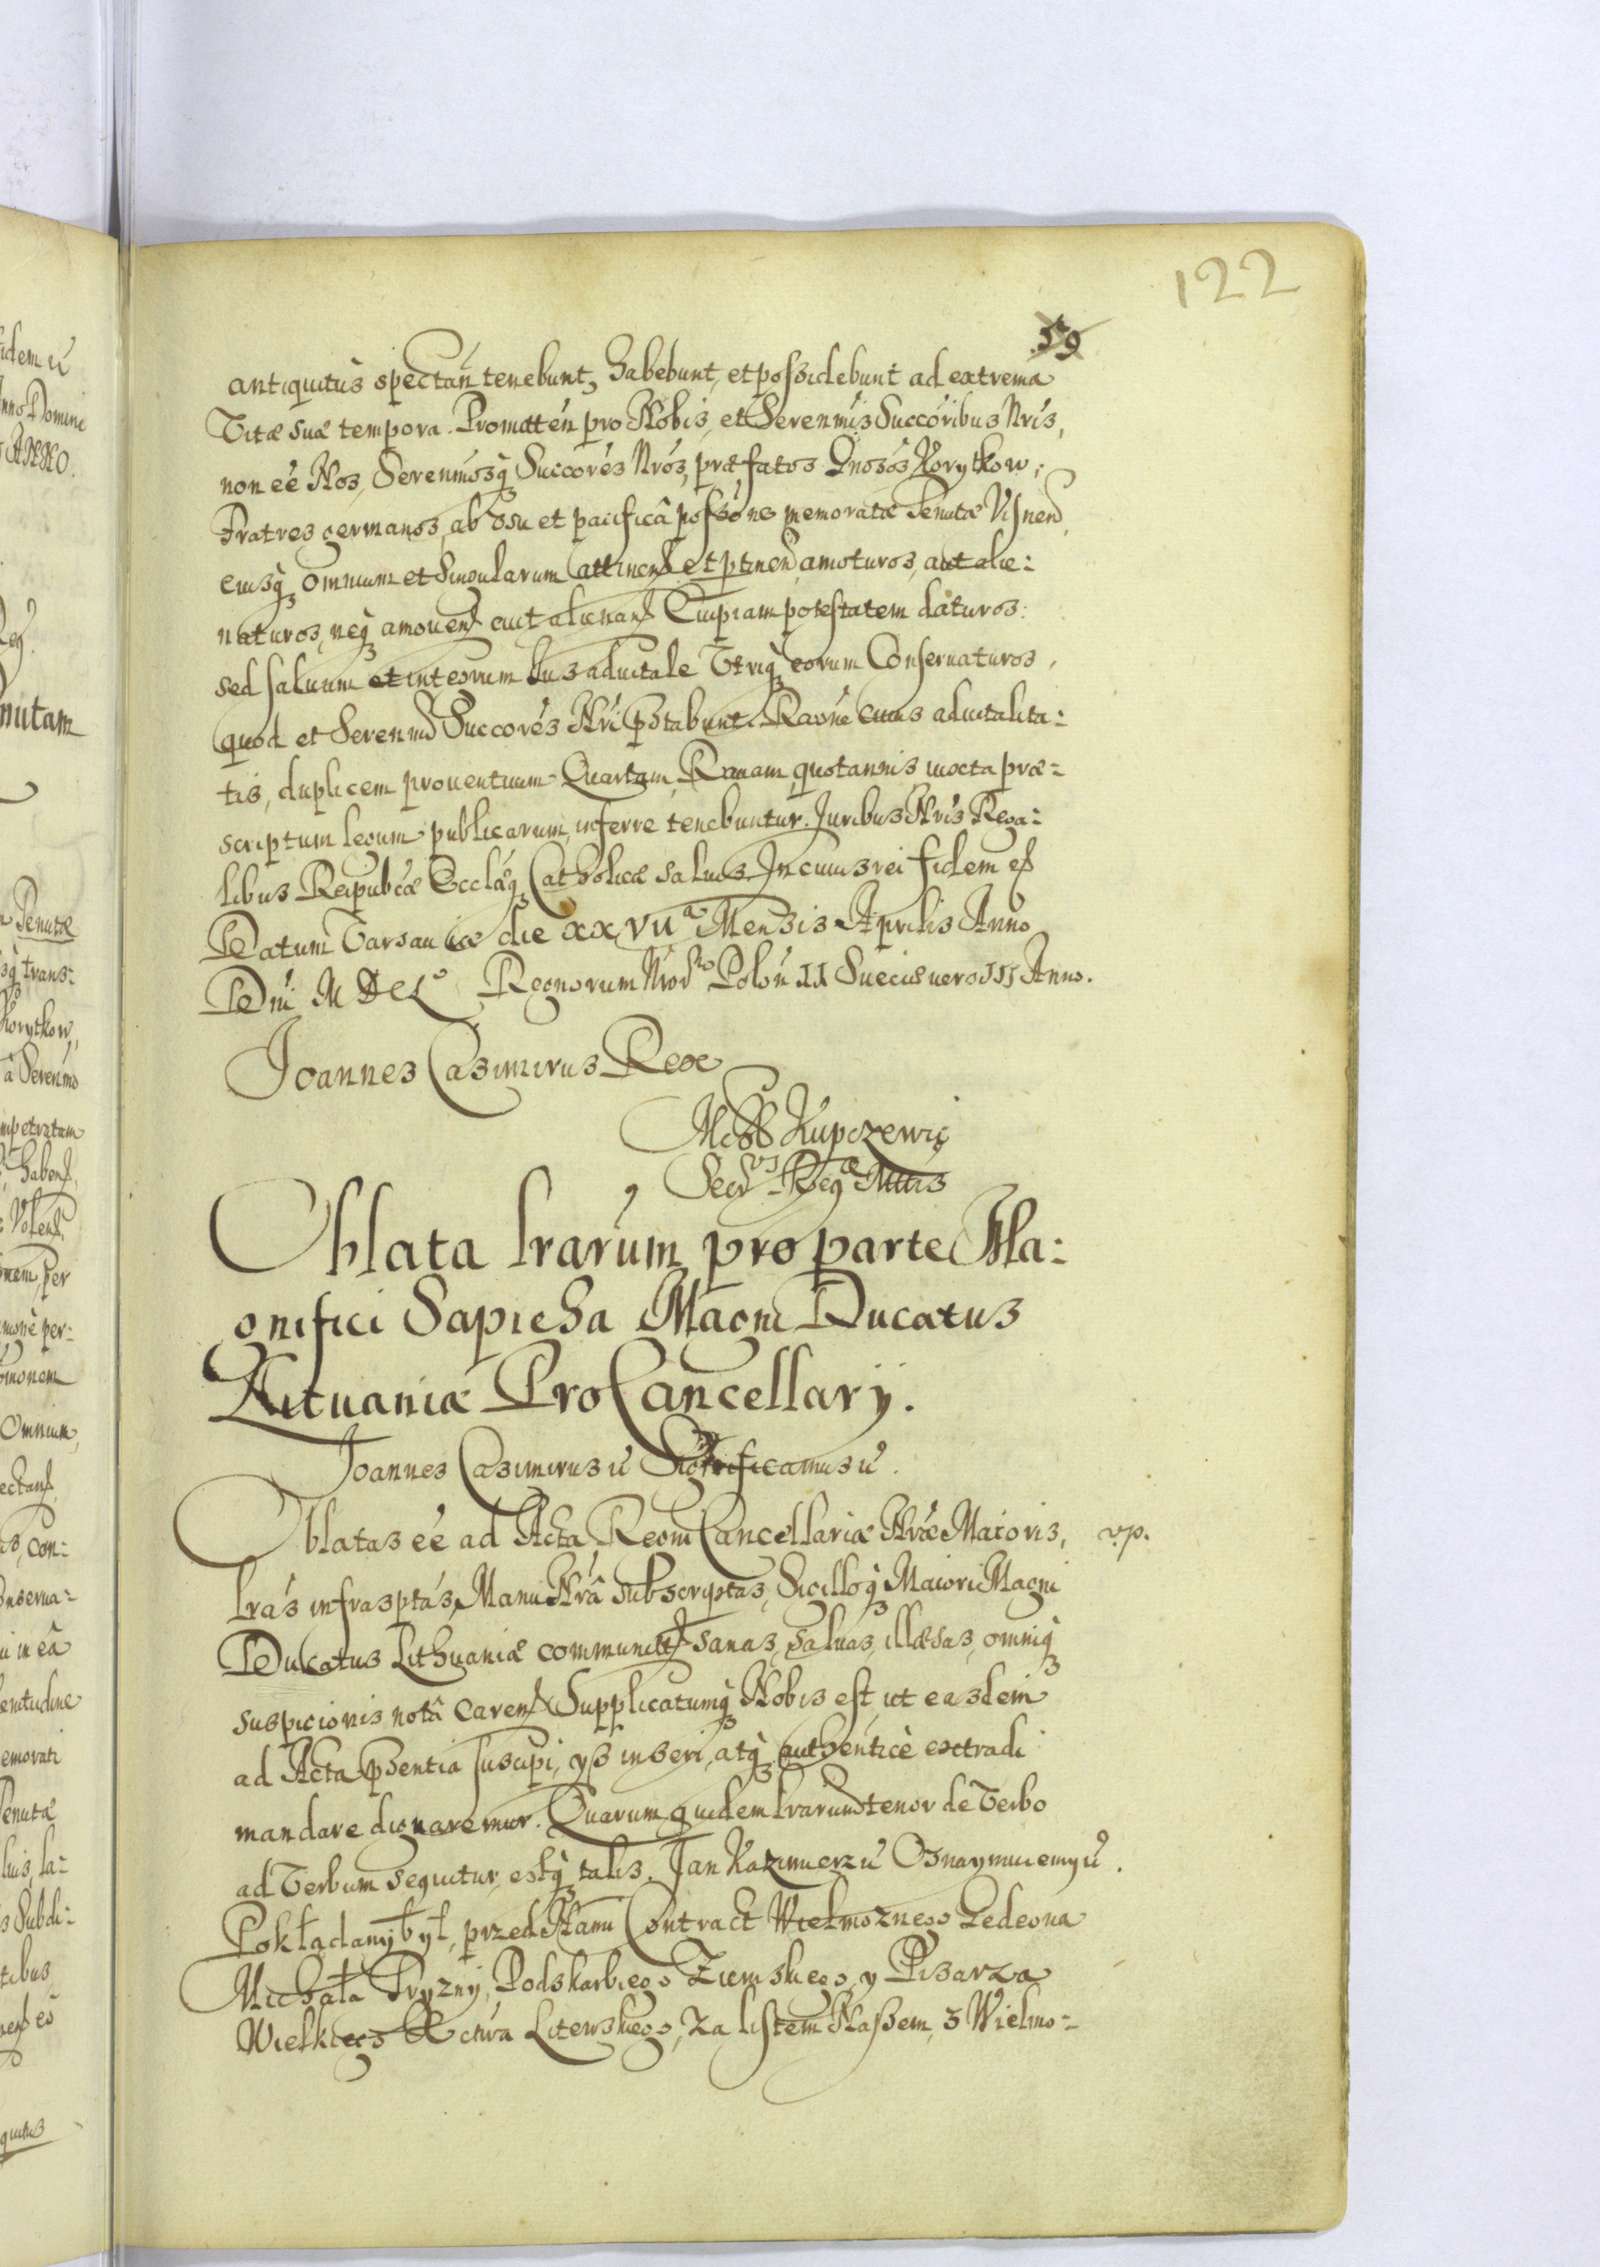 122
59
antiquitùs spectan̄ tenebunt, habebunt, et possidebunt ad extrema
Vitæ suæ tempora. Promitten̄ pro Nobis, et Seren̄mis Succoribus Nr̄is,
non eē Nos, Seren̄mosq̨ Succorēs Nr̄os, præfatos Gn̄osos Korytkow,
Fratres germanos, ab vsu et pacificâ possōne memoratæ Tenutæ Visnen̄,
eiusq̨ omnium et Singularum attinen̄ et ptinen̄, amoturos, aut alie:
naturos, neq̨ amouen̄ aut alienan̄ Cuipiam potestatem daturos:
sed saluum et integrum Ius aduitale Vtriq̨ eorum Conseruaturos,
quod et Seren̄mi Succorēs Nr̄i p̄stabunt. Raōne cuius aduitalita:
tis, duplicem prouentuum Quartam, Rauam, quotannis iuxta præ:
scriptum legum publicarum, inferre tenebuntur. Iuribus Nr̄is Rega:
libus Reipub͞cæ Eccl͞æq̨ Catholicæ saluis. In cuius rei fidem et͞c
Datum Varsauiæ die XXVII a Mensis Aprilis Anno
Dn̄i MDCL o Regnorum Nr̄or̄ Polōn II Sueciæ vero III Anno.
Joannes Casimirus Rex
Secr̄ us Reg æ Mttis
Oblata lr̄arum pro parte Ma:
gnifici Sapieha Magni Ducatus
Lituaniæ ProCancellarij.
Joannes Casimirus ut͞ Significamus ut͞.
Oblatas eē ad Acta Regni Cancellariæ Nr̄æ Maioris, vp.
lr̄as infrasptas, Manu Nr̄â subscriptas, Sigilloq̨ Maiori Magni
Ducatus Lithuaniæ communit͞, sanas, saluas, illæsas, omniq̨
suspicionis notâ caren̄. Supplicatumq̨ Nobis est, ut easdem
ad Acta p̄sentia suscipi, ijs inseri, atq̨ authenticè extradi
mandare dignaremur. Quarum quidem lr̄arum tenor de Verbo
ad Verbum sequitur, estq̨ talis. Jan Kazimierz ut͞ Oznaymuiemy ut͞.
Pokładany był, przed Nami Contract Wielmoznego Gedeona
Michała Tryzny, Podskarbiego Ziemskiego, y Pisarza
Wielkiego Xctwa Litewskiego, za listem Naszem, z Wielmo: